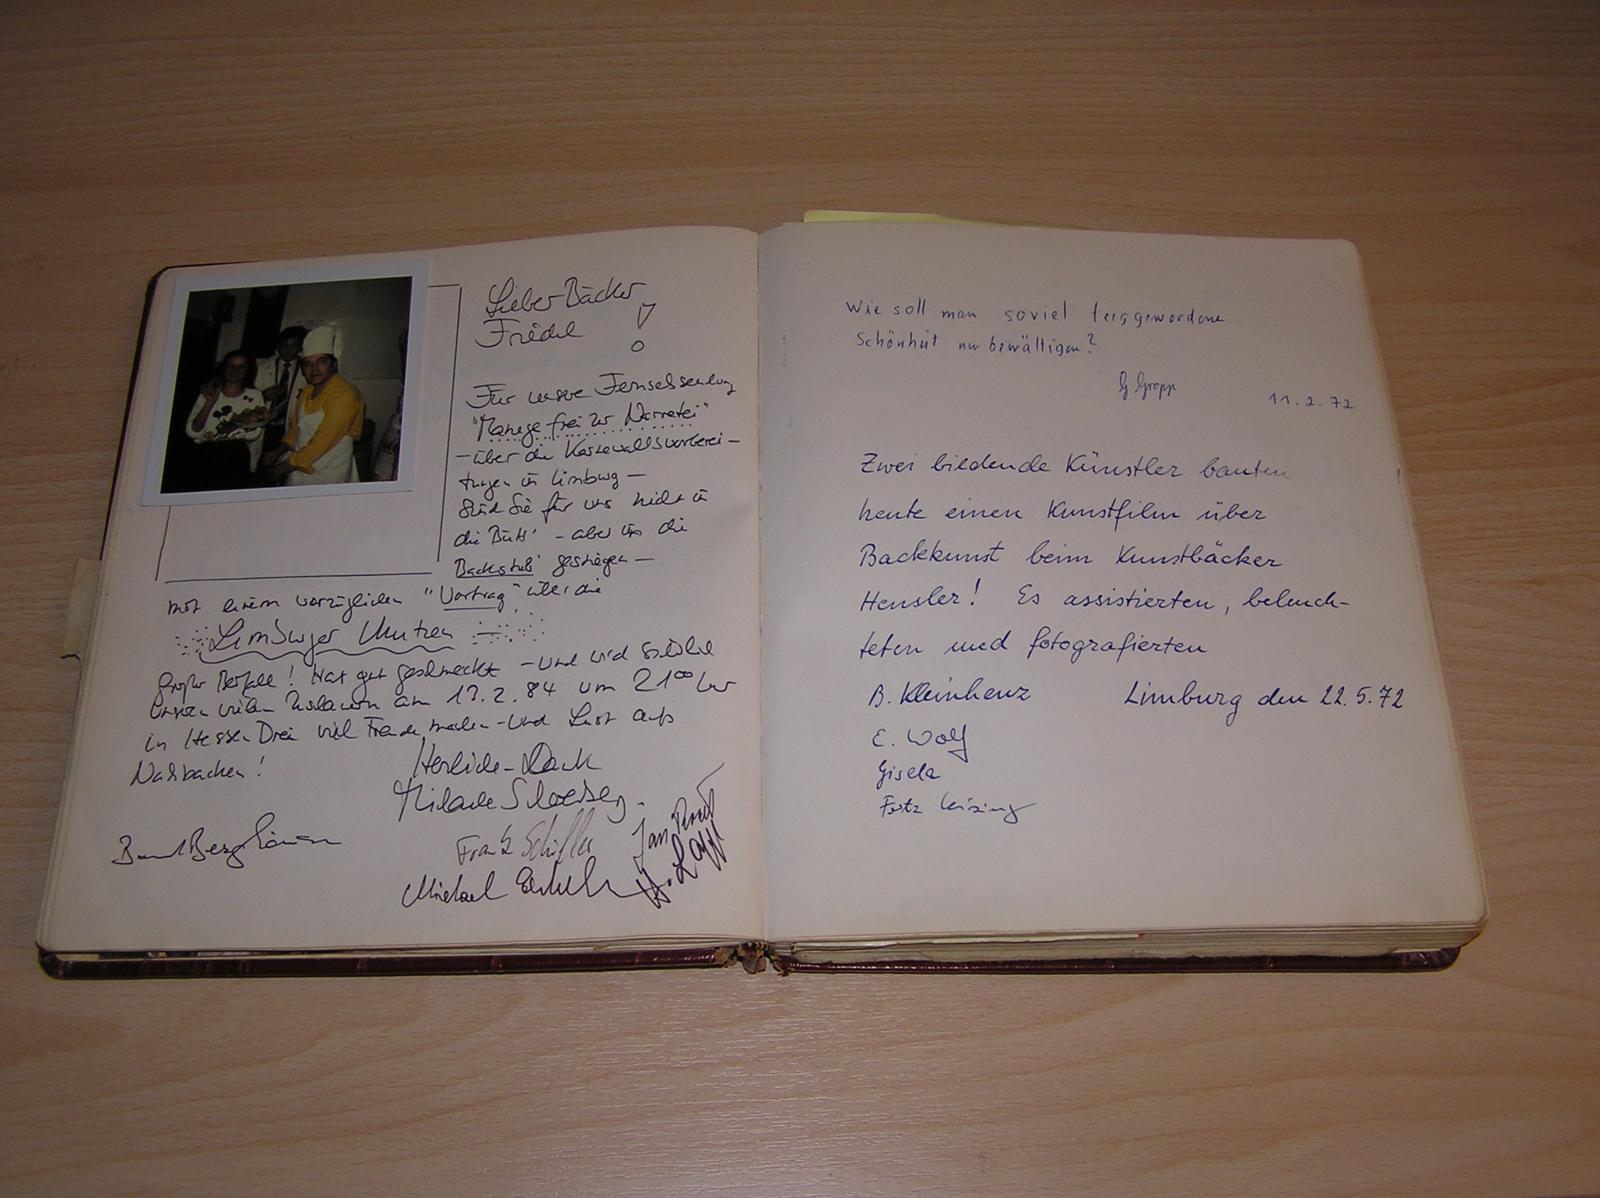 Lieber Bäcker
Friedel !
Für unsere Fernsehsendung
"Manege frei zur Narretei"
- über die Karnevallsvorberei-
tungen in Limburg -
sind Sie für uns nicht in
die Bütt' - aber in die
Backstub' gestiegen -
mit einem vorzüglichen "Vortrag" über die
Limburger Mutzen
Großer Beifall! Hat gut geschmeckt - und wird
unseren vielen Zuschauern am 13.2.84 um 21⁰⁰ Uhr
in Hessen Drei viel Freude machen - und Lust aufs
Nachbacken!
Herzlich-Dank
Frank
Michael
Wie soll man soviel teiggewordene
Schönheit nur bewältigen?
G Gropp
11.2.72
Zwei bildende Künstler bauten
heute einen Kunstfilm über
Backkunst beim Kunstbäcker
Hensler! Es assistierten, beleuch-
teten und fotografierten
B. Kleinhenz Limburg den 22.5.72
E. Wolf
Gisela
Fritz